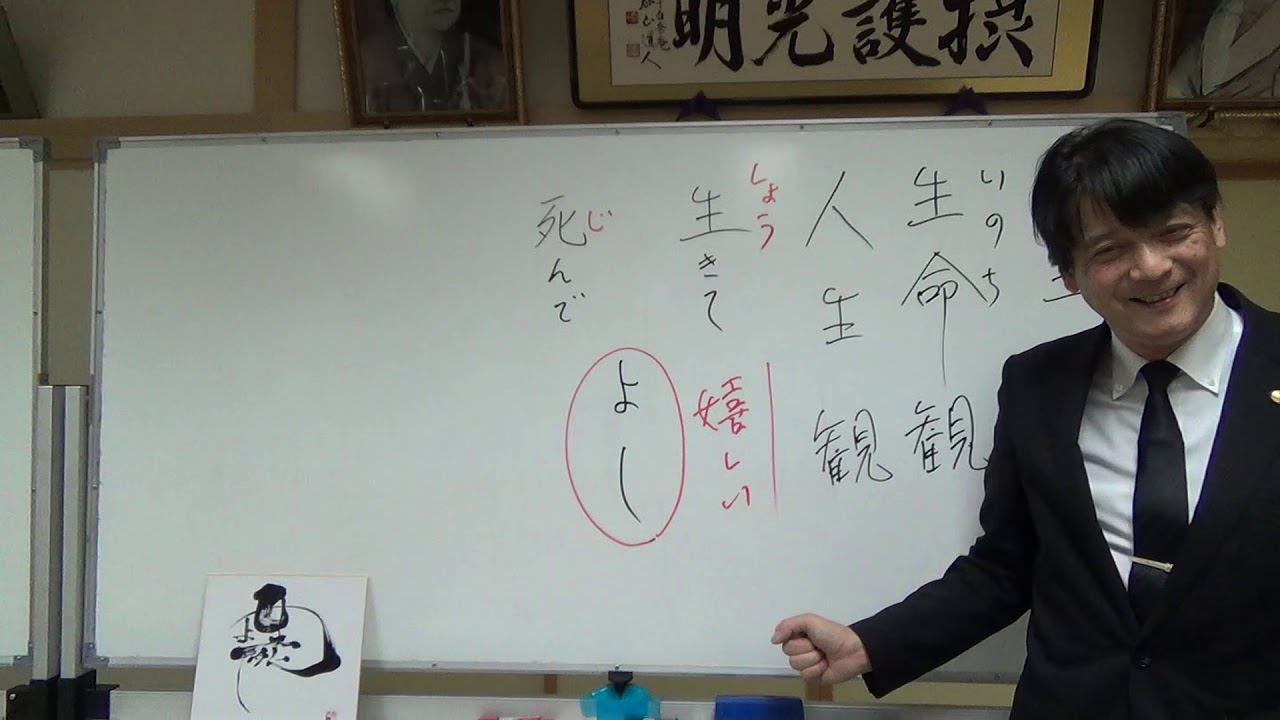 摂護光明
いのち
生命観
人生観
しょう
生きて
嬉しい
じ
死んで
よし